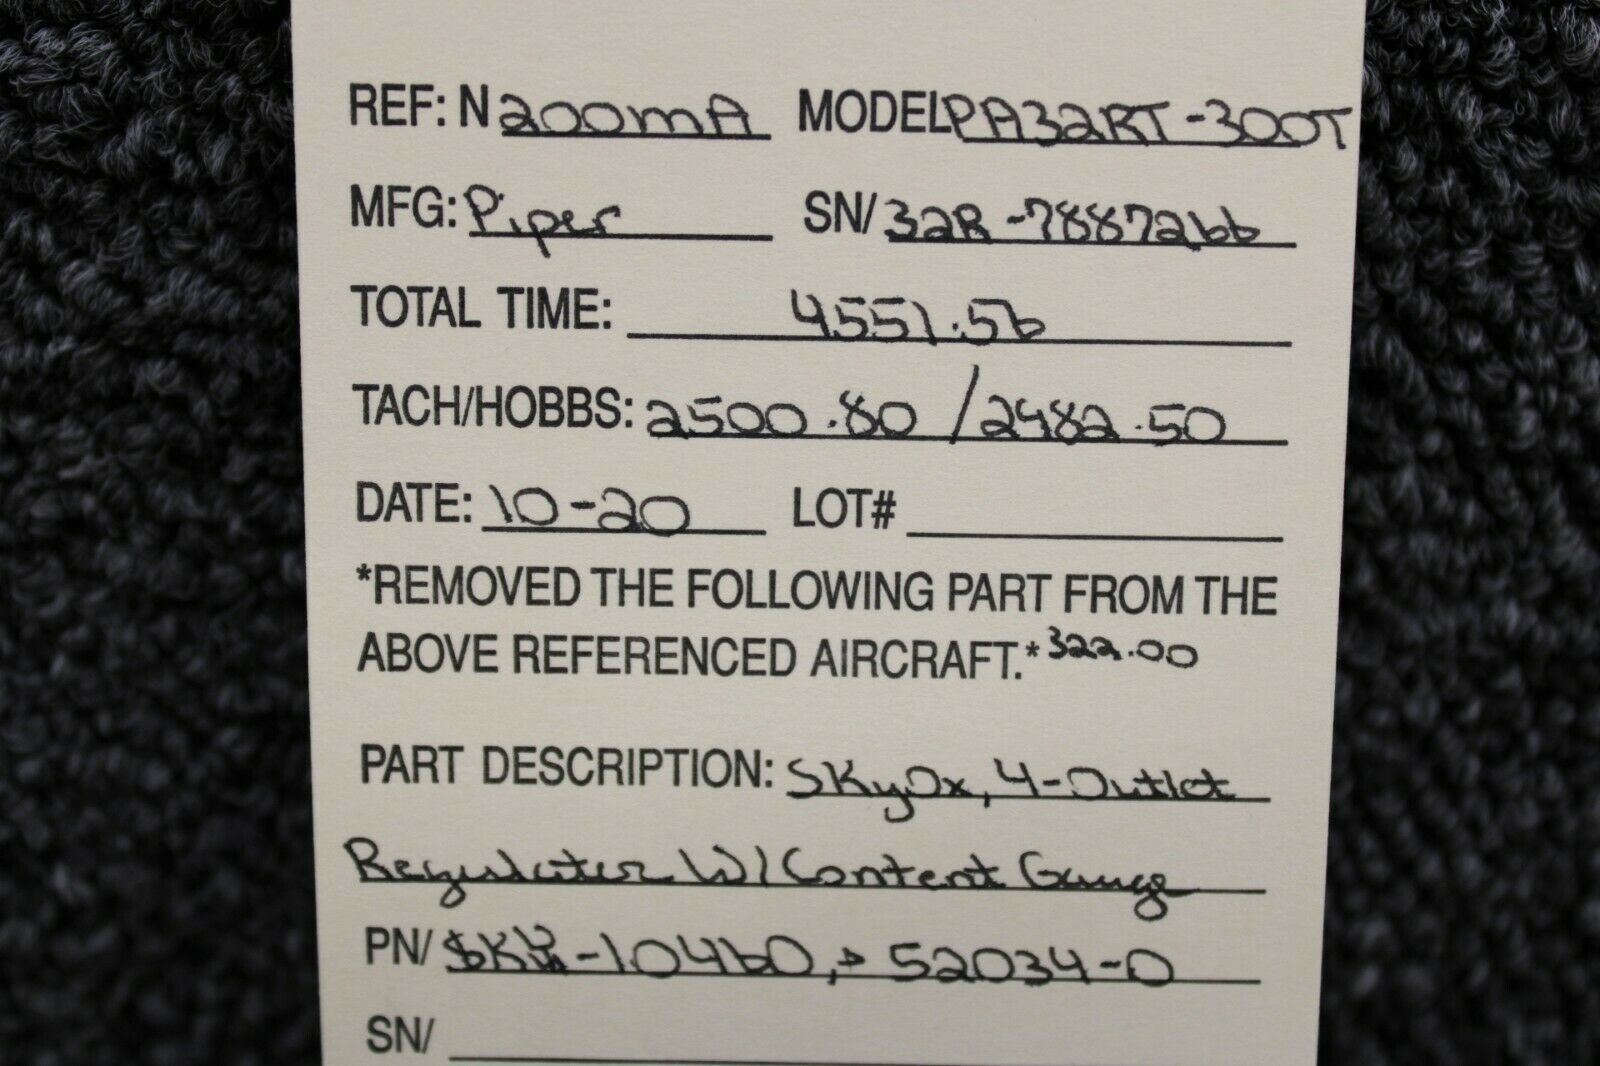 REF: N 200MA MODEL PA32RT-300T
MFG: Piper SN/ 32R-7887266
TOTAL TIME: 4551.56
TACH/HOBBS: 2500.80 / 2482.50
DATE: 10-20 LOT#
*REMOVED THE FOLLOWING PART FROM THE
ABOVE REFERENCED AIRCRAFT.* 322.00
PART DESCRIPTION: SkyOx, 4-Outlet
Regulator W/ Content Gauge
PN/ -10460, 52034-0
SN/